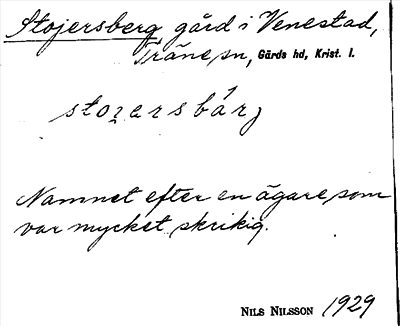 Stojersberg, gård i Venestad,
Träne sn, Gärds hd, Krist. l.
stoɿarsbárʒ
Namnet efter en ägare som
var mycket skrikig.
NILS NILSSON 1929